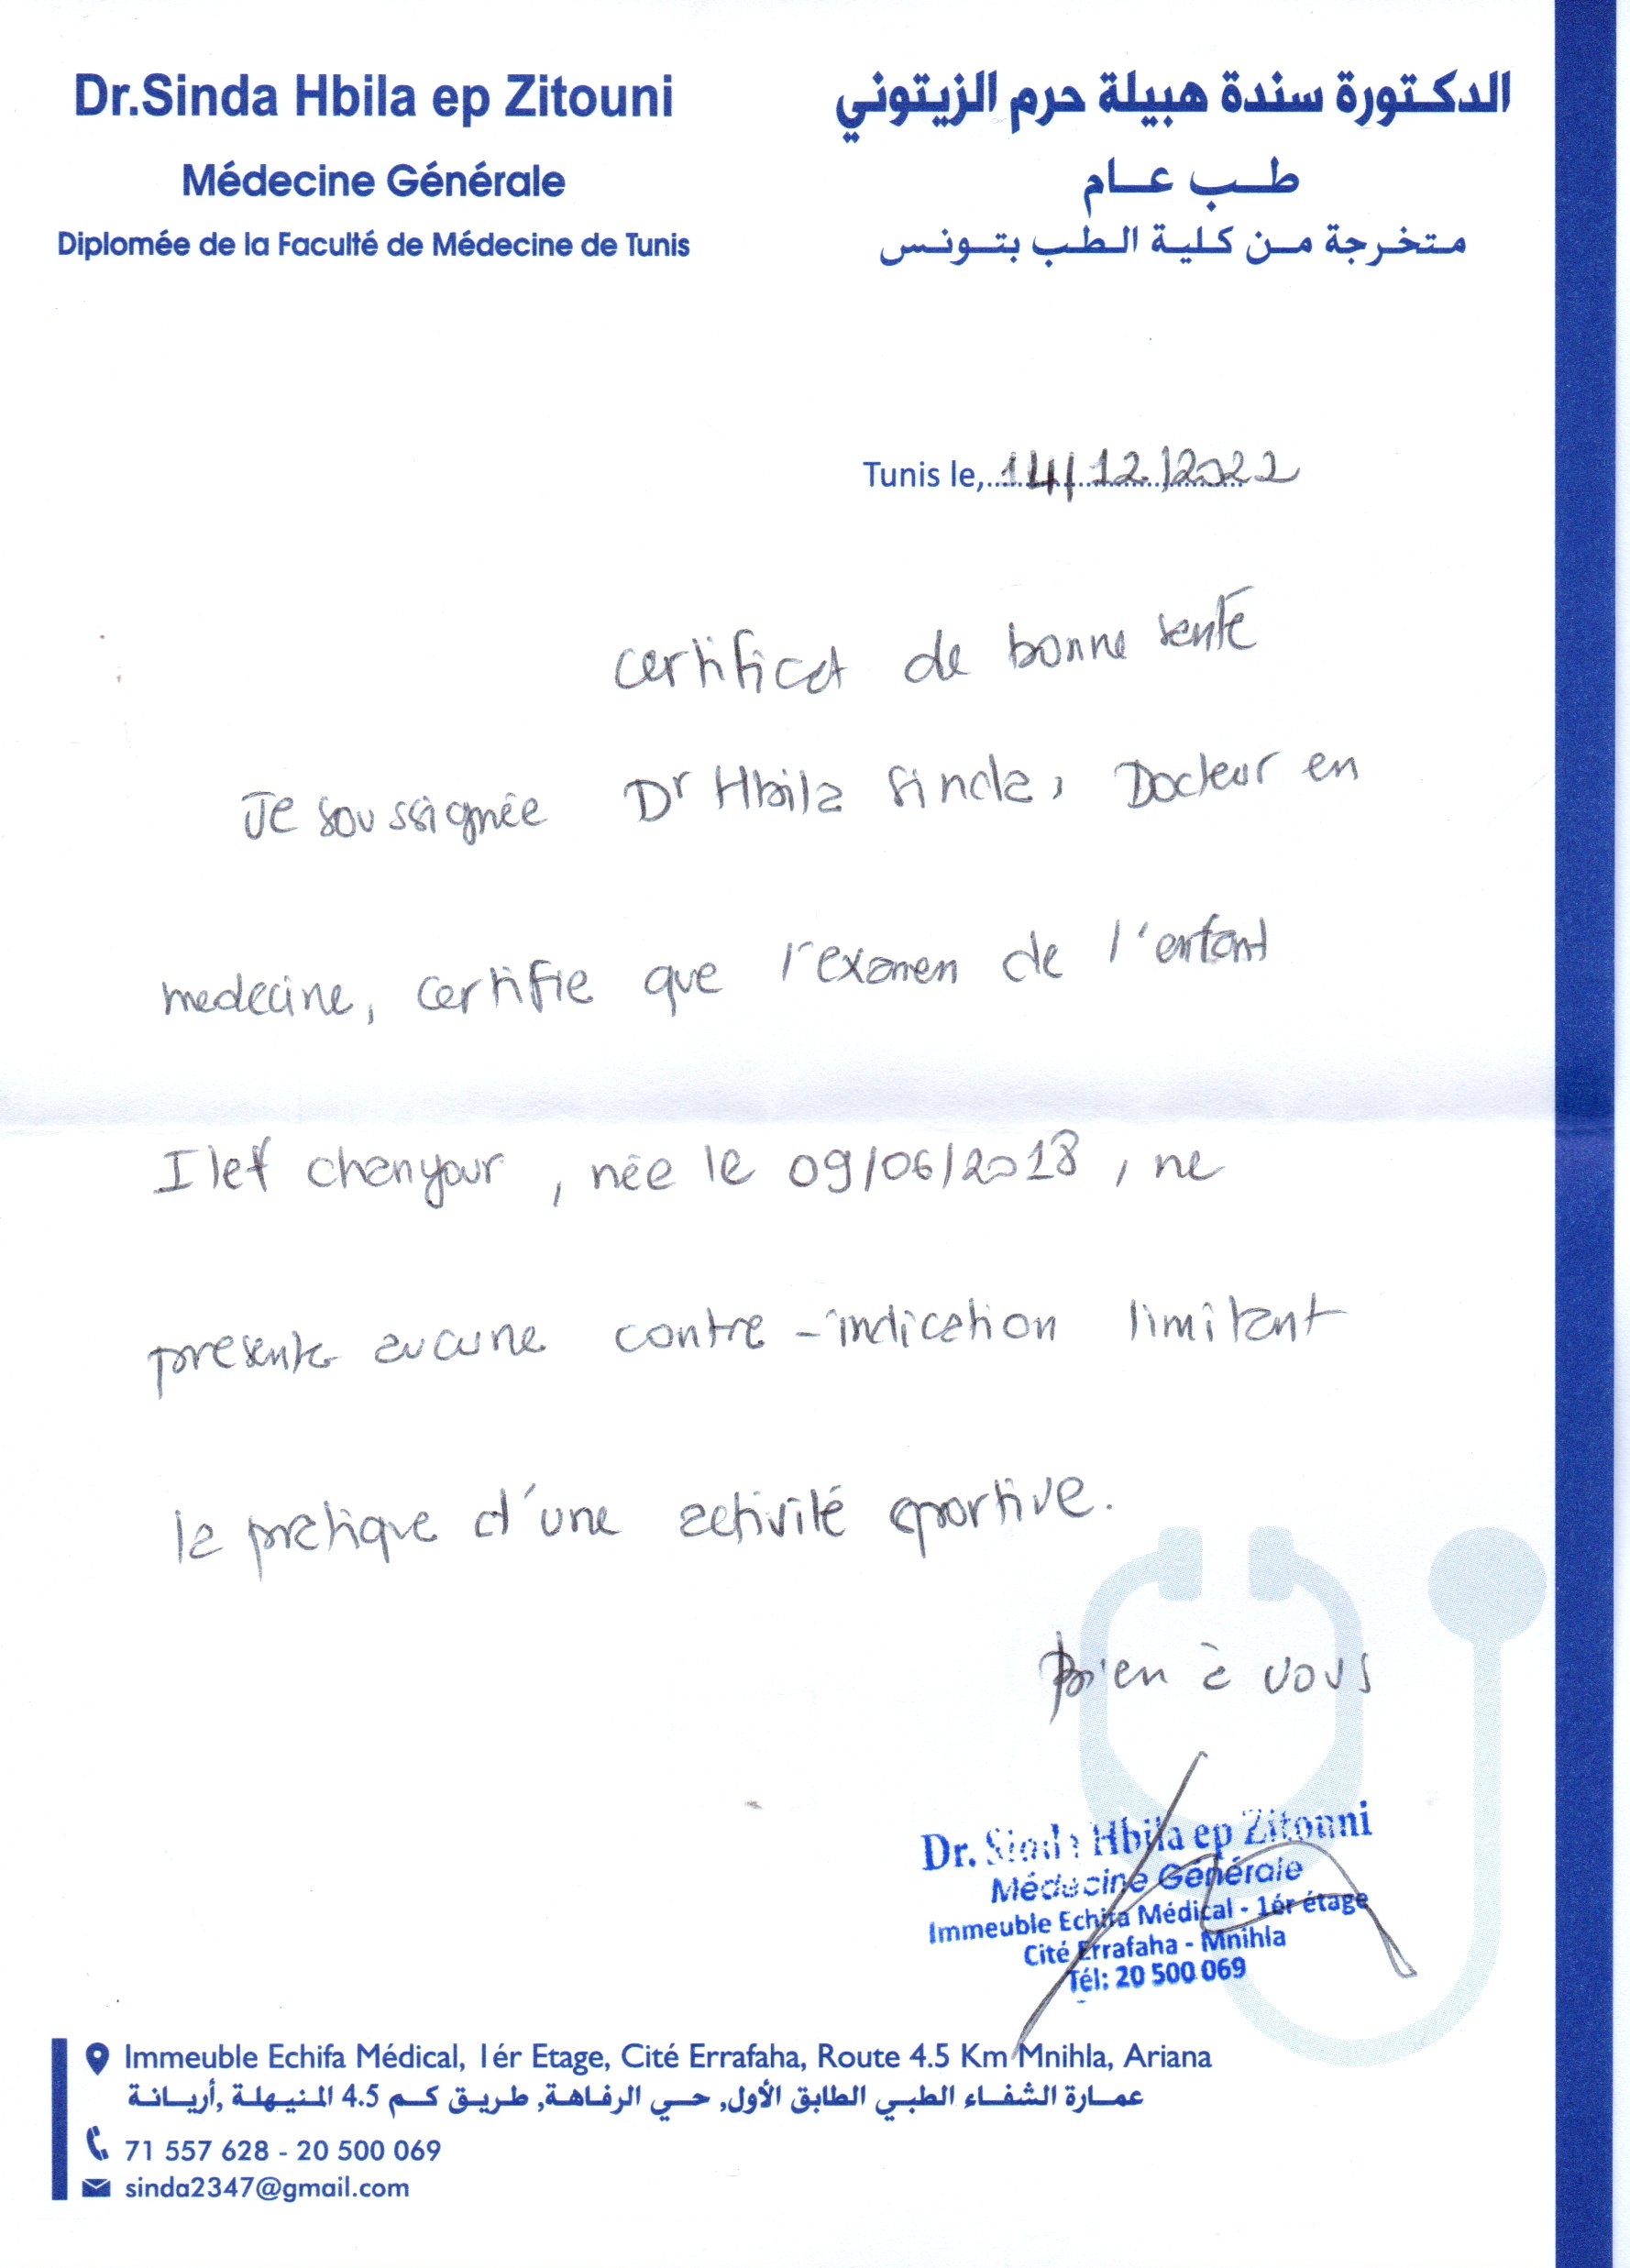 Dr.Sinda Hbila ep Zitouni
Médecine Générale
Diplomée de la Faculté de Médecine de Tunis
الدكتورة سندة هبيلة حرم الزيتوني
طب عام
متخرجة من كلية الطب بتونس
Tunis le, 14/12/2022
certificat de bonne santé
Je soussignée Dr Hbila Sinda, Docteur en
medecine, certifie que l'examen de l'enfant
Ilef chanyour, née le 09/06/2018, ne
presente aucune contre-indication limitant
la pratique d'une activité sportive.
Bien à vous
Dr. Sinda Hbila ep Zitouni
Médecine Générale
Immeuble Echifa Médical - 1ér étage
Cité Errafaha - Mnihla
Tél: 20 500 069
Immeuble Echifa Médical, 1ér Etage, Cité Errafaha, Route 4.5 Km Mnihla, Ariana
عمارة الشفاء الطبي الطابق الأول, حي الرفاهة, طريق كم 4.5 المنيهلة ,أريانة
71 557 628 - 20 500 069
sinda2347@gmail.com